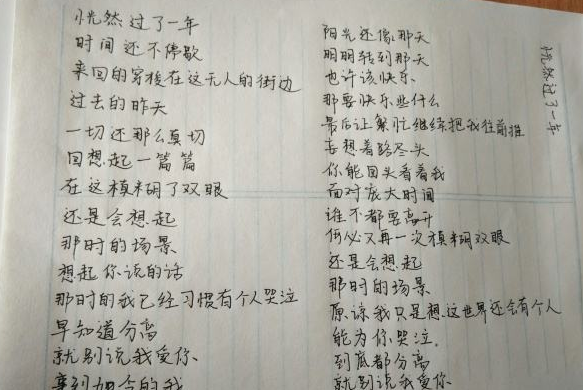 恍然过了一年
时间还不停歇
来回的穿梭在这无人的街边
过去的昨天
一切还那么真切
回想起一篇篇
在这模糊了双眼
还是会想起
那时的场景
想起你说的话
那时的我已经习惯有个人哭泣
早知道分离
就别说我爱你、
的我
阳光还像那天
明明转到那天
也许该快乐
那要快乐些什么
最后让繁忙继续把我往前推
妄想着路尽头
你能回头看着我
面对庞大时间
谁不都要离开
何必又再一次模糊双眼
还是会想起
那时的场景
原谅我只是想这世界还会有个人
能为你哭泣。
到底都分离
就别说我爱你
恍然过了一年